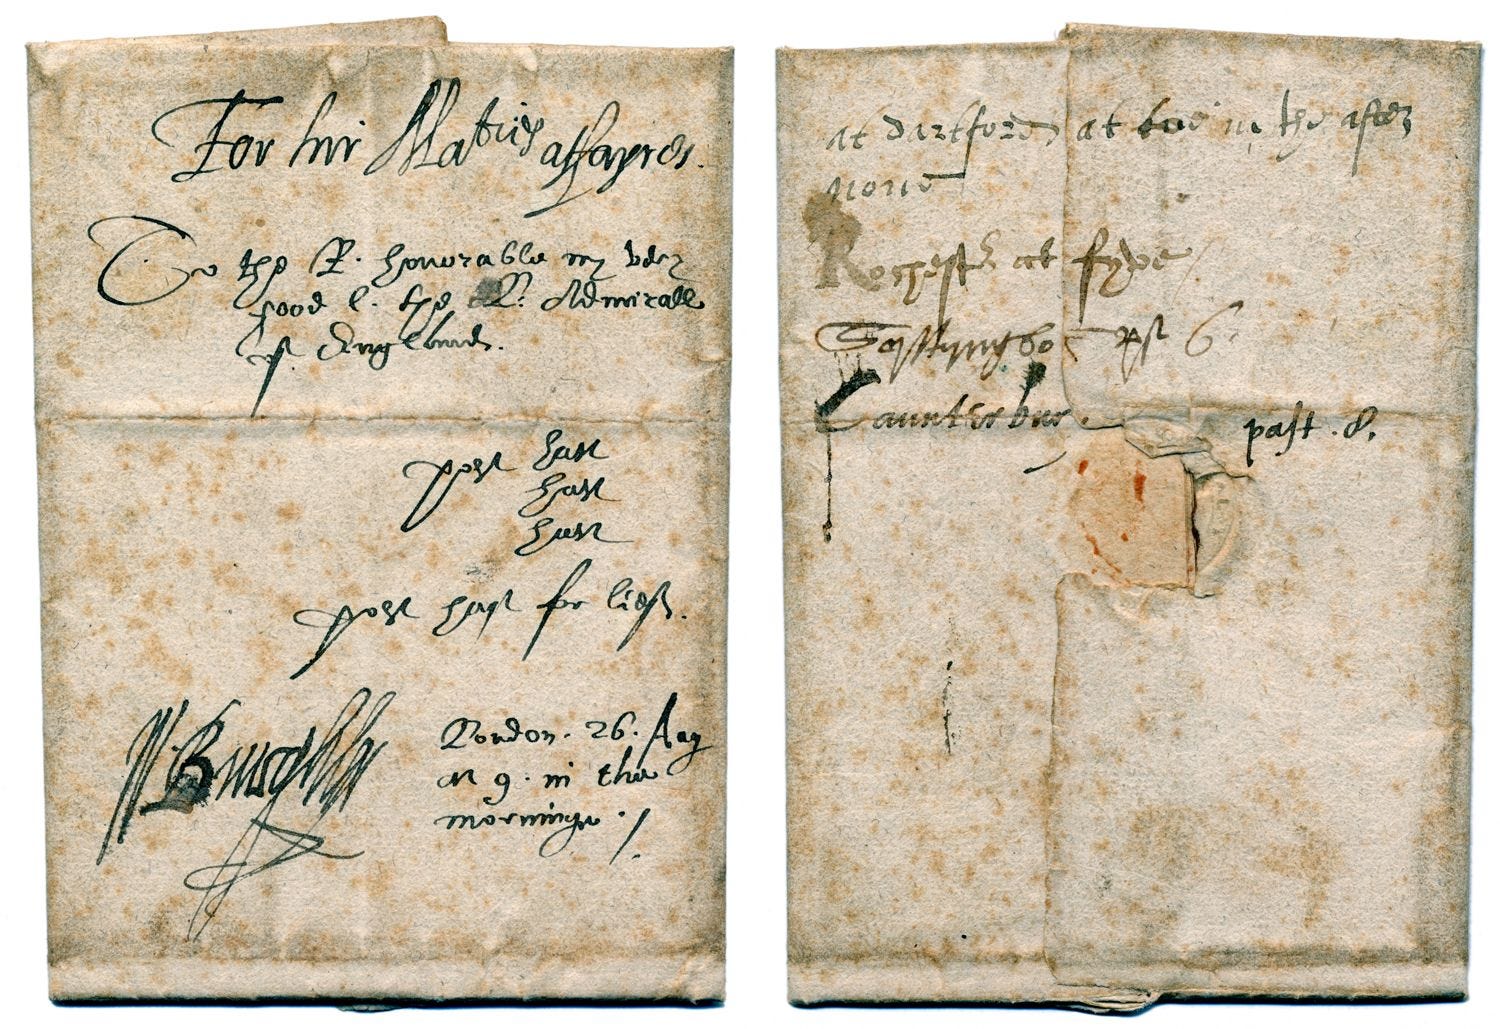 For hir Maties affayres.
To the R. honorable my very
good l. the L. Admirall
of England.
post hast
hast
hast
post hast for lief.
W. Burghley
London. 26. Aug
at 9. in the
morninge ./.
at dartford at two in the after
none
Rochester at fyve
Syttyngbo past 6.
Caunterbury. past .8.